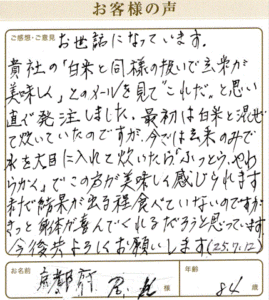 お客様の声
ご感想・ご意見
お世話になっています。
貴社の「白米と同様の扱いで玄米が
美味しく」とのメールを見て"これだ"と思い
直ぐ発注しました。最初は白米と混ぜ
て炊いていたのですが、今では玄米のみで
水を大目に入れて炊いたら「ふっくら、やわ
らかく」でこの方が美味しく感じられます
まだ結果が出る程食べていないのですが
きっと身体が喜んでくれるだろうと思っています
今後共よろしくお願いします(25.7.12)
お名前
京都府
様
年齢
84
歳